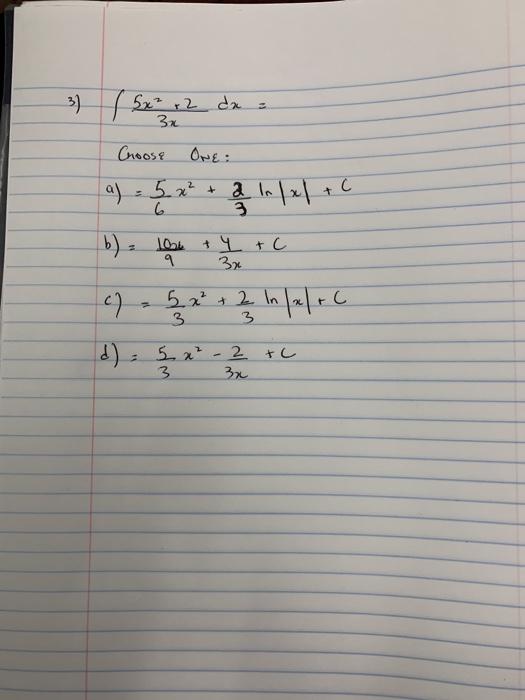 3) ∫ 5x² + 2 / 3x dx =
Choose One:
a) = 5/6 x² + 2/3 ln|x| + C
b) = 10x/9 + 4/3x + C
c) = 5/3 x² + 2/3 ln|x| + C
d) = 5/3 x² - 2/3x + C